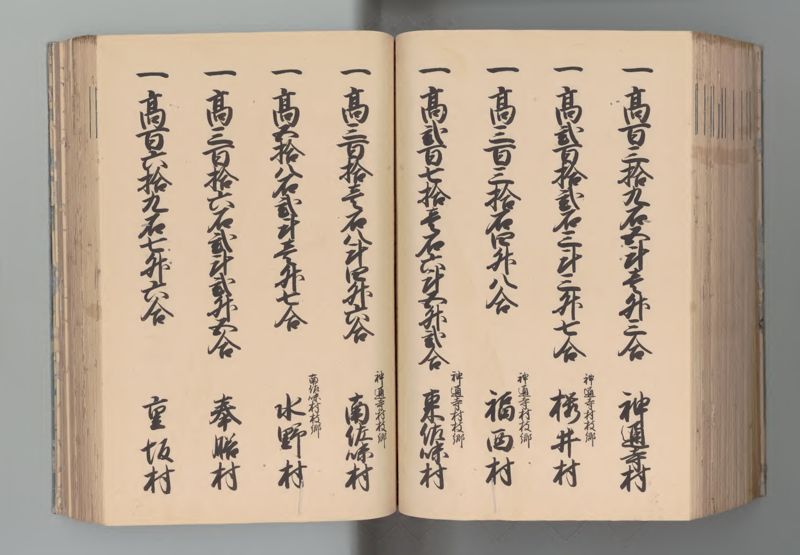 一高百三拾九石五斗壱升三合 神通寺村
一高弐百拾弐石三斗三升七合 神通寺村枝郷 桜井村
一高三百三拾石四升八合 神通寺村枝郷 福西村
一高弐百七拾壱石六斗五升弐合 神通寺村枝郷 東佐味村
一高三百拾壱石八斗四升六合 神通寺村枝郷 南佐味村
一高五拾八石弐斗壱升七合 南佐味村枝郷 水野村
一高三百拾六石弐斗弐升五合 奉膳村
一高百六拾九石七升六合 重坂村